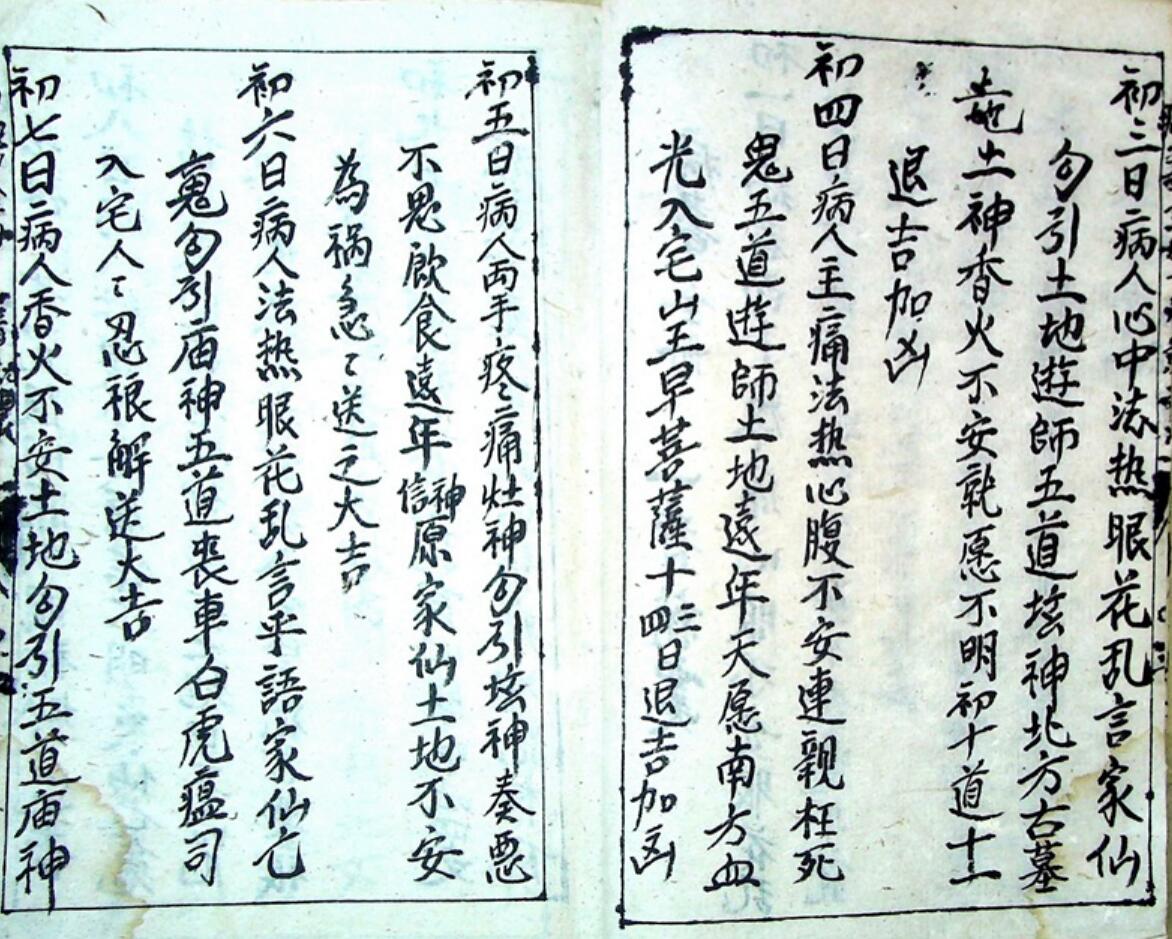 初三日病人心中法热眼花乱言家仙
勾引土地遊師五道坛神北方古墓
土地土神香火不安就愿不明初十道士
退吉加凶
初四日病人主痛法热心腹不安連親枉死
鬼五道遊師土地遠年天愿南方血
光入宅山王早菩薩十三四日退吉加凶
初五日病人両手疼痛灶神勾引坛神奏悪
不思飲食遠年信神原家仙土地不安
為禍急〻送之大吉
初六日病人法热眼花乱言乎語家仙亡
勾引庙神五道丧車白虎瘟司
入宅人〻忍裉解送大吉
初七日病人香火不安土地勾引五道庙神